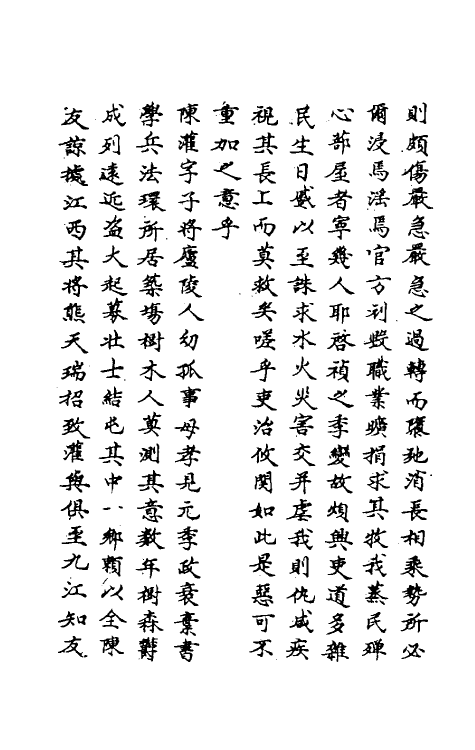 則頗傷嚴急嚴急之過轉而環弛消長相乘勢所必
爾浸焉淫焉官方刓毀職業曠捐求其牧我蒸民殫
心蔀屋者寧幾人耶啓禎之季變故煩興吏道多雜
民生日蹙以至誅求水火災害交并虐我則仇咸疾
視其長上而莫救矣嗟乎吏治攸関如此是惡可不
重加之意乎
陳灌字子將廬陵人幼孤事母孝見元季政衰棄書
學兵法環所居築場樹木人莫測其意数年樹森欝
成列遠近盗大起募壮士結屯其中一鄉賴以全陳
友諒據江西其将熊天瑞招致灌與俱至九江知友